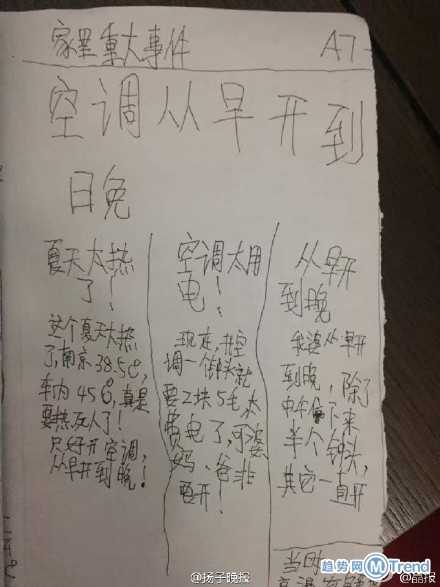 家里重大事件
A7
空调从早开到
晚
夏天太热
了!
这个夏天太热
了,南京38.5℃,
车内45℃,真是
要热死人了!
只好开空调,
从早开到晚!
空调太用
电!
现在,开空
调一个钟头就
要2块5毛,太
费电了,可婆
妈、爸非
要开!
从早开
到晚
我婆从早开
到晚,除了
中午停下来
半个钟头,
其它一直开
当时
趋势网 M Trend
@扬子晚报
@晶报